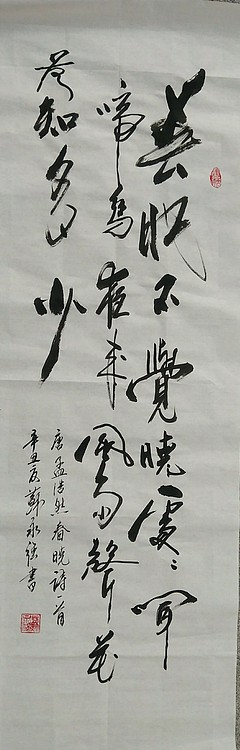 春眠不覺曉處處聞
啼鳥夜来風雨聲花
落知多少
唐孟浩然春曉詩一首
辛丑夏蘇永強書